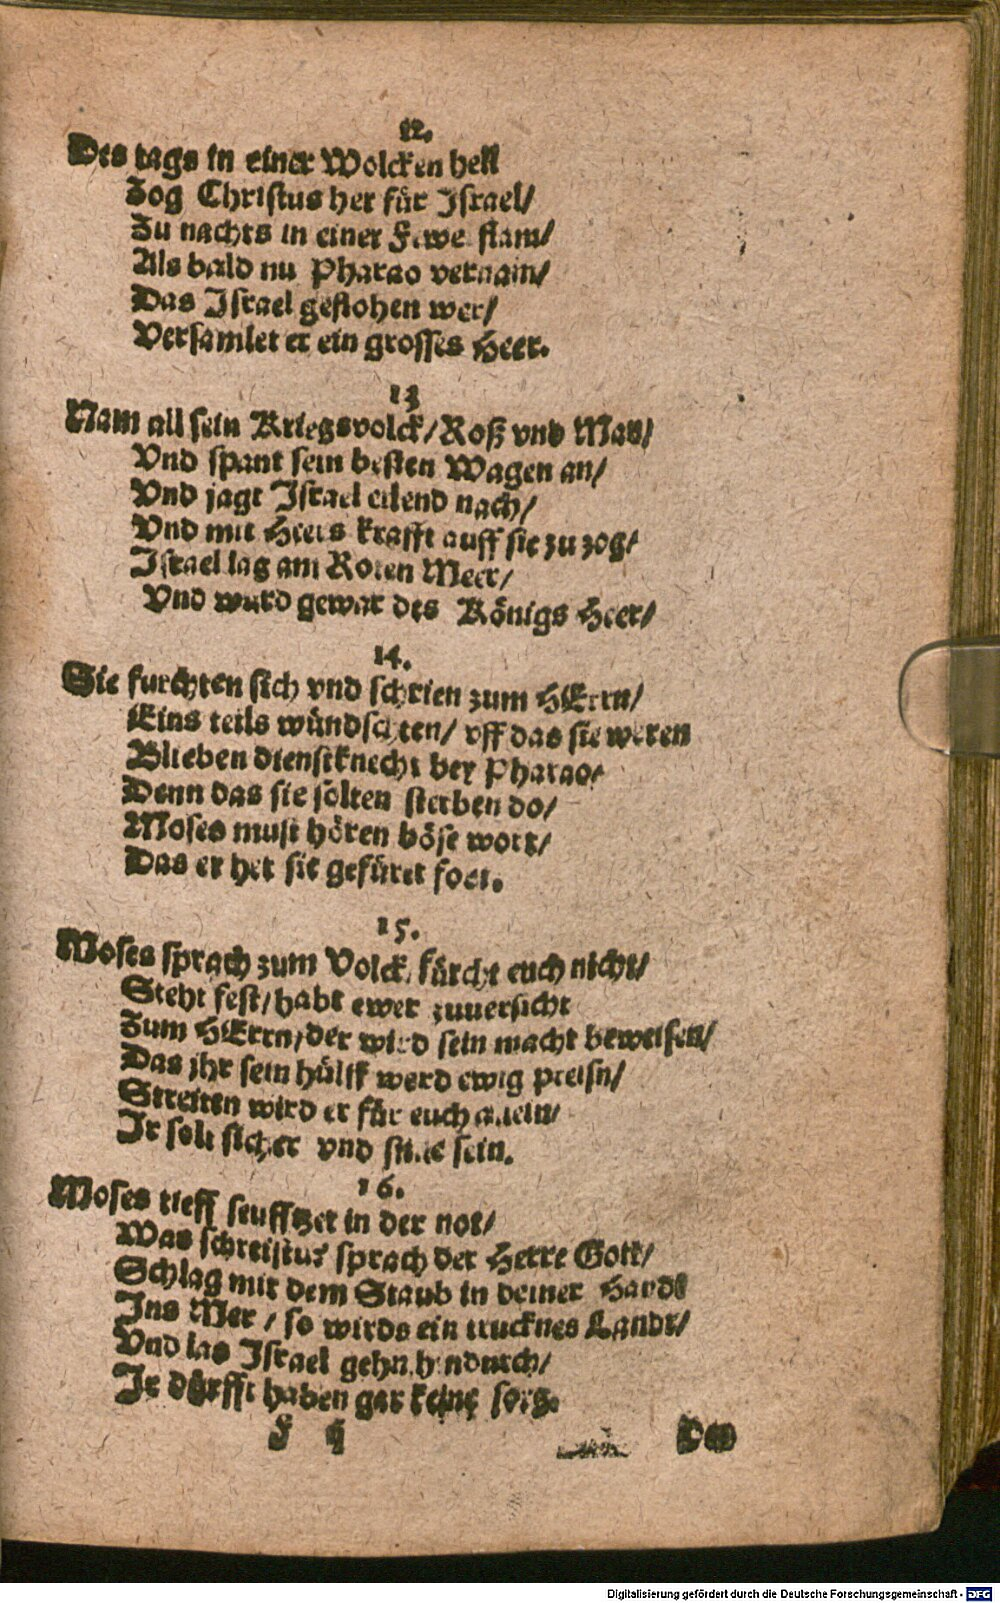 12.
Des tags in einer Wolcken hell
Zog Christus her für Israel/
Zu nachts in einer Fewe flam/
Als bald nu Pharao vernam/
Das Israel geflohen wer/
Versamlet er ein grosses Heer.
13
Nam all sein Kriegsvolck/Roß vnd Man/
Vnd spant sein besten Wagen an/
Vnd jagt Israel eilend nach/
Vnd mit Heers krafft auff sie zu zog/
Israel lag am Roten Meer/
Vnd ward gewar des Königs Heer/
14.
Sie furchten sich vnd schrien zum HErrn/
Eins teils wündschten/ vff das sie weren
Blieben dienstknecht bey Pharao/
Denn das sie solten sterben do/
Moses must hören böse wort/
Das er het sie gefüret fort.
15.
Moses sprach zum Volck/ fürcht euch nicht/
Steht fest/habt ewer zuuersicht
Zum HErrn/der wird sein macht beweisen/
Das jhr sein hülff werd ewig preisn/
Streiten wird er für euch allein/
Ir solt sicher vnd stille sein.
16.
Moses tieff seufftzet in der not/
Was schreistus sprach der Herre Gott/
Schlag mit dem Staub in deiner Handt
Ins Mer / so wirds ein trucknes Landt/
Vnd las Israel gehn hindurch/
Ir dürfft haben gar keine sorg.
F ij Des
Digitalisierung gefördert durch die Deutsche Forschungsgemeinschaft - DFG